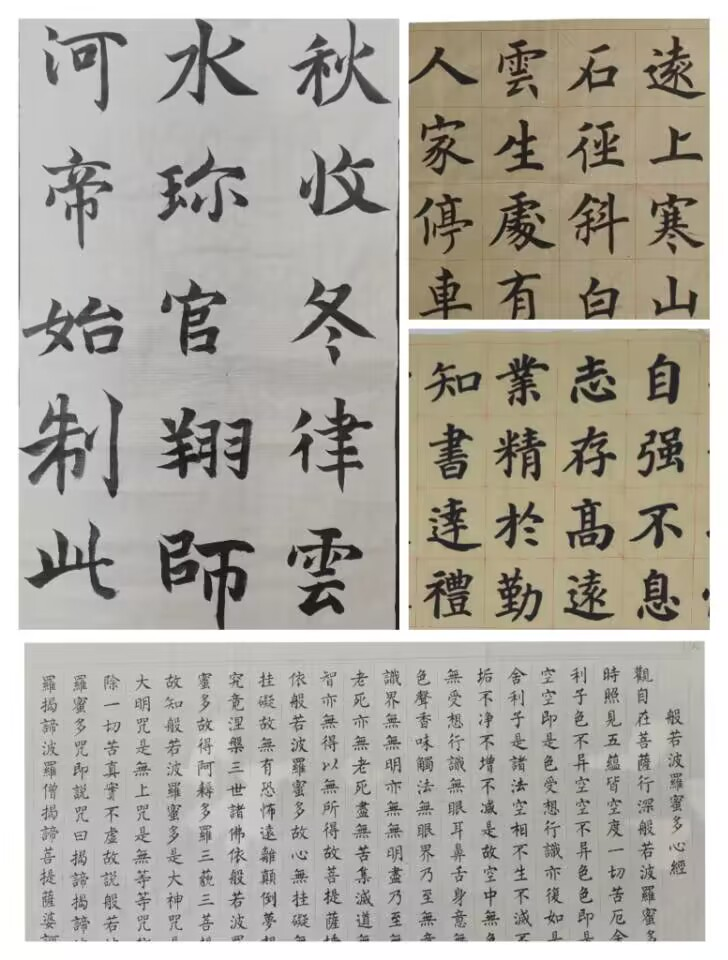 秋收冬律雲
水珎官翔師
河帝始制此
遠上寒山
石徑斜白
雲生處有
人家停車
自强不息
志存高遠
業精於勤
知書達禮
般若波羅蜜多心經
觀自在菩薩行深般若波羅蜜多
時照見五蘊皆空度一切苦厄舍
利子色不异空空不异色色即是
空空即是色受想行識亦復如是
舍利子是諸法空相不生不滅不
垢不净不增不减是故空中無色
無受想行識無眼耳鼻舌身意無
色聲香味觸法無眼界乃至無意
識界無無明亦無無明盡乃至無
老死亦無老死盡無苦集滅道無
智亦無得以無所得故菩提薩埵
依般若波羅蜜多故心無挂礙無
挂礙故無有恐怖遠離顛倒夢想
究竟涅槃三世諸佛依般若波羅
蜜多故得阿耨多羅三藐三菩提
故知般若波羅蜜多是大神咒是
大明咒是無上咒是無等等咒能
除一切苦真實不虛故説般若波
羅蜜多咒即説咒曰揭諦揭諦波
羅揭諦波羅僧揭諦菩提薩婆訶